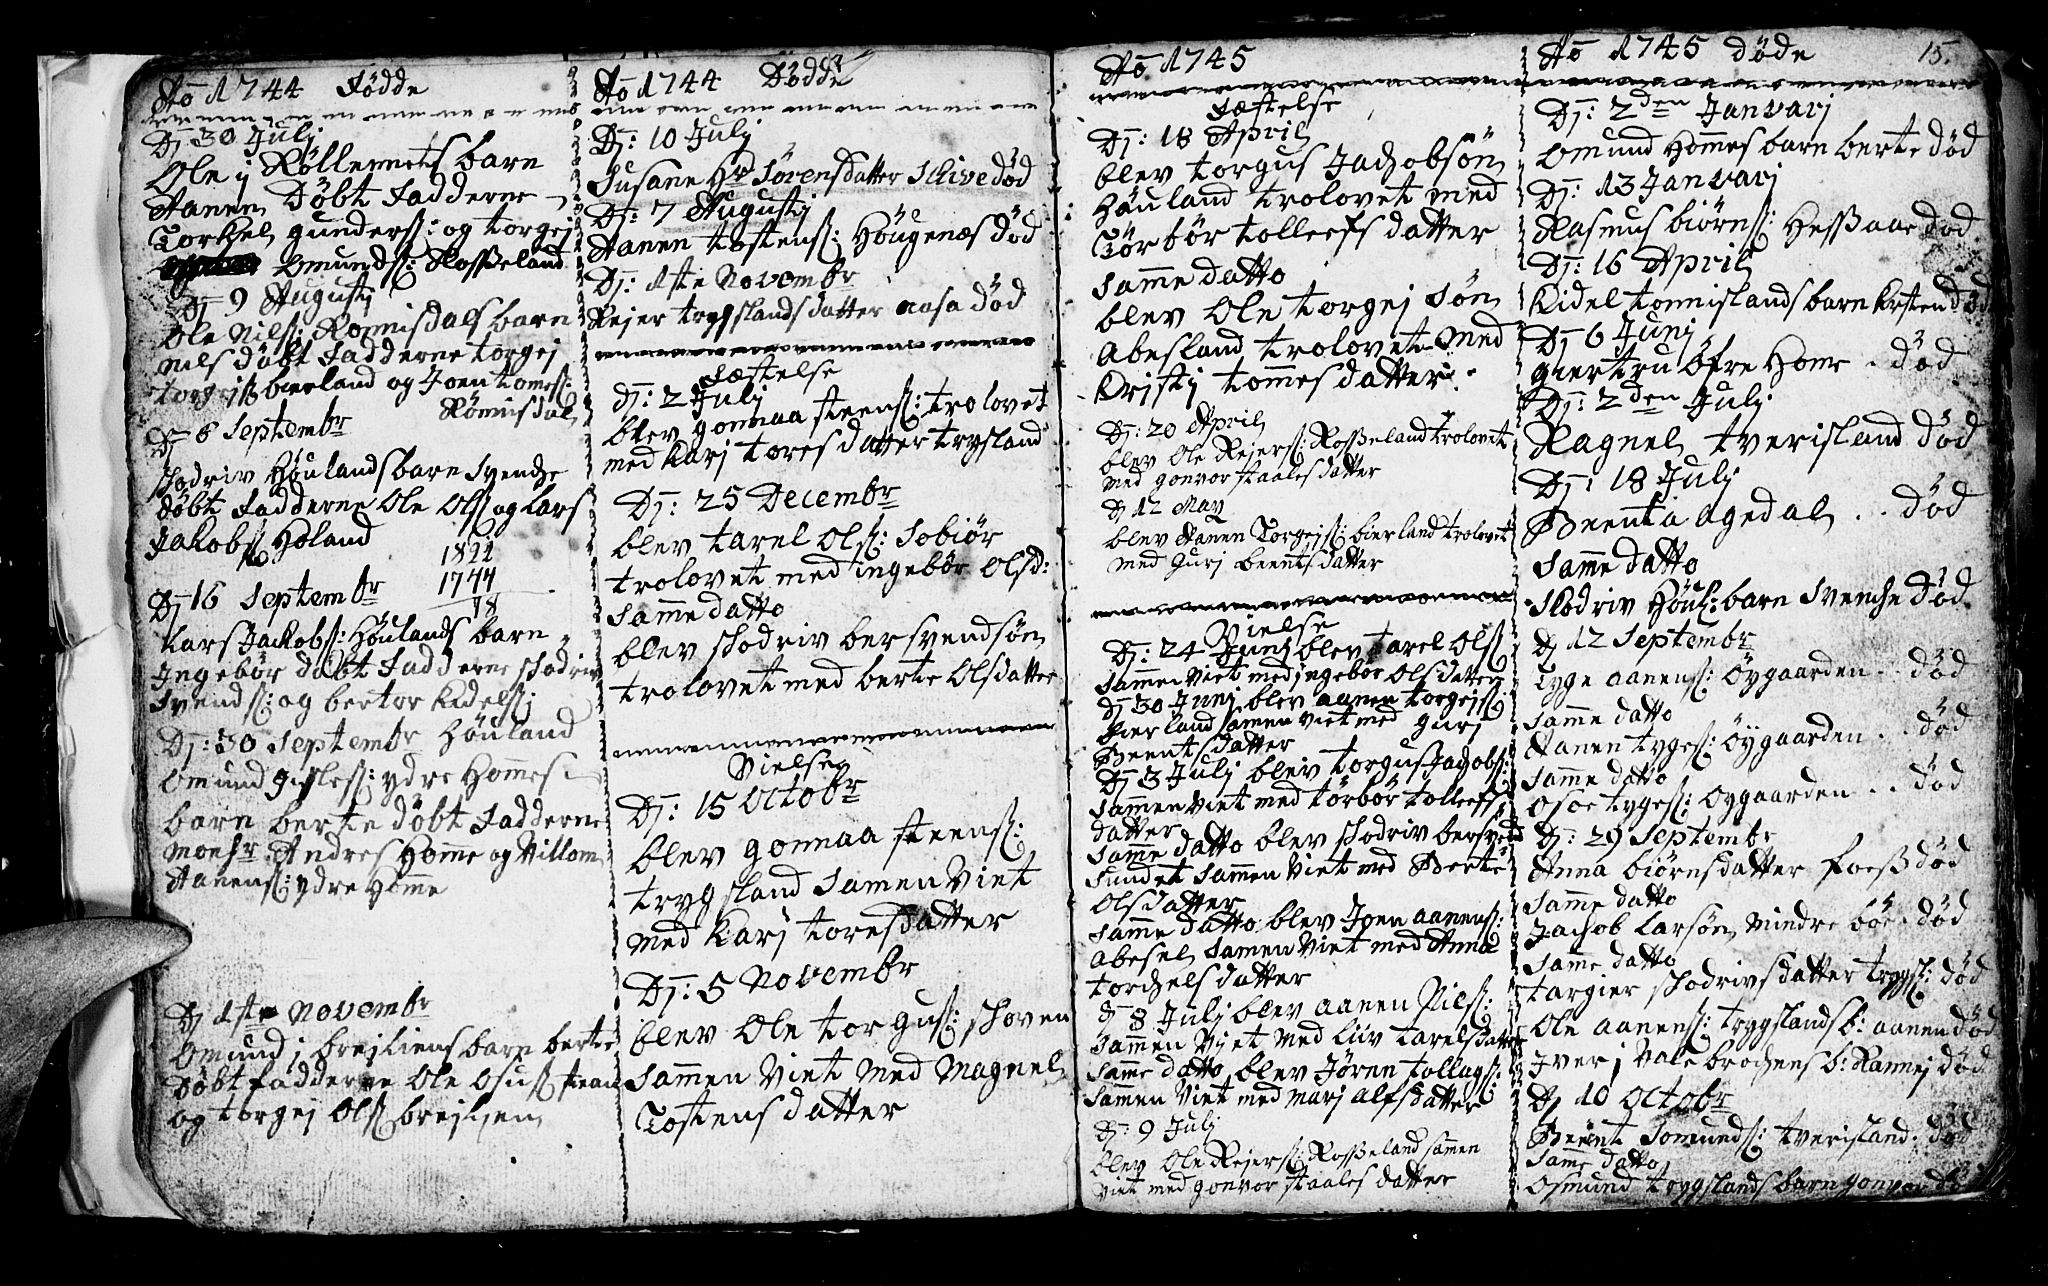 Ao 1744 Fødde
Dj 30 Julj
Ole j Røllemets barn
Aanen Døbt Fadderne
Torkel gunders: og torgej
omunds: Rosseland
Dj 9 Augustj
Ole Nils: Romisdals barn
nils døbt Fadderne torgej
torgejs bierland og Joen tomes:
Rømisdal
Dj 6 Septembr
shodriv Høulands barn Svenche
døbt Fadderne Ole Ols og Lars
Jakobs Høland
1822
1744
78
Dj 16 Septembr
Lars Jackobs: Høulands barn
Ingebør døbt Fadderne shodriv
Svends: og bertor Kidels j
Høuland
Dj: 30 Septembr
omund ydre Hommes
barn berte døbt Fadderne
monsr: Andres Homme og Villom
Aanens: ydre Homme
Dj 1ste Novembr
Omund j brejliens barn berte
Døbt fadderne Ole Osus
og torgej Ols brejlien
Ao 1744 Dødde
Dj: 10 Julj
Susane Hr Sørensdatter Schive død
Dj: 7 Augustj
Aanen tostens: Høugenæs død
Dj: 1ste Novembr
Rejer trygslands datter aasa død
Fæstelse
dj: 2 Julj
blev gonnaa steens: trolovet
med karj tores datter trysland
Dj: 25 Decembr
blev tarel Ols: Sobiør
trolovet med ingebør Olsd:
Samme datto
blev shodriv bersvendsøn
trolovet med berte Olsdatter
Vielse
Dj: 15 Octobr
blev gonnaa steens:
trygsland Samen Viet
med karj toresdatter
Dj: 5 Novembr
blev Ole torgus: shoven
Samen Viet med Magnel
Tostensdatter
Ao 1745
Fæstelse
Dj: 18 April
blev torgus Jachobsøn
Høuland trolovet med
Tørbør tolleefs datter
Samme datto
blev Ole torgej søn
Abesland trolovet med
Kristj tommesdatter
Dj: 20 April
blev Ole Rejers: Rosseland trolovet
med gonvor staalesdatter
Dj 12 May
blev Aanen Torgejs: bierland trolovet
med gurj beentsdatter
Vielse
Dj: 24 Junj blev tarel Ols
Samen Viet med ingebør Olsdatter
dj 30 Junj blev aanen torgejs
bierland samen viet med gurj
Beentsdatter
Dj 3 Julj blev torgus Jachobs:
Sammen Viet med tørbør tolleefs
datter
Samme datto blev shodriv bersvend
Sundet Sammen Viet med Berte
Olsdatter
Samme datto blev Joen aanens:
abesel Samen Viet med Anna
torchelsdatter
Dj 8 Julj blev aanen Nils:
Sammen Vjet med Liiv tarelsdatter
Same datto blev Jøren tollags:
Sammen Viet med Marj alfsdatter
Dj: 9 Julj
blev Ole Rejers: Rosseland samen
Viet med gonvor staales datter
Ao 1745 døde
15.
Dj: 2den Janvarj
omund Hommes barn berte død
Dj: 13 Janvarj
Rasmus biørns: Hessaae død
Dj: 16 April
Kidel tomislands barn kirsten død
Dj 6 Junj
giertru øfre Home . død
Dj: 2den Julj
Ragnel tverisland død
Dj: 18 Julj
Beenta agedal . . død
Samme datto
Skodriv Høul: barn Svenche død
dj 12 Septembr
Tyge aanens: Øygaarden . . død
Samme datto
Aanen tyges: Øygaarden . . død
Samme datto
osoe tyges: Øygaarden . . død
dj: 29 Septembr
Anna biørnsdatter foess død
Samme datto
Jachob Larsøn Mindre bøe . død
Samme datto
targier shodrivsdatter trygsl: død
Ole aanens: trygslands b: aanen død
Jver j Vale brochens b: Rannej død
Dj 10 Octobr
Beent Somunds: tverisland . død
Samme datto
Osmund trygslands barn gonvor dø